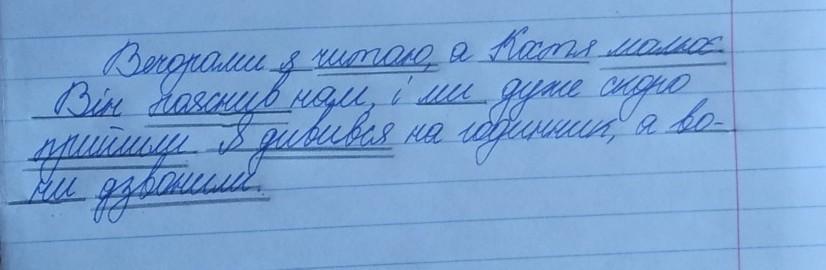 Вечорами я читаю, а Костя малює.
Він пояснив нам, і ми дуже скоро
прийшли. Я дивився на годинник, а во-
ни дзвонили.